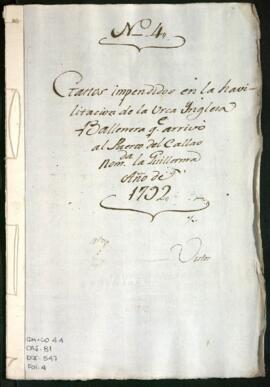 No. 4,
Gastos impendidos en la havi-
litacion de la Urca Inglesa
Ballenera q.e arrivó
al Puerto del Callao
nom.da la Guillerma
Año de
1792
Visto
GM-CO 44
CAJ. 81
DOC. 547
FOL. 4